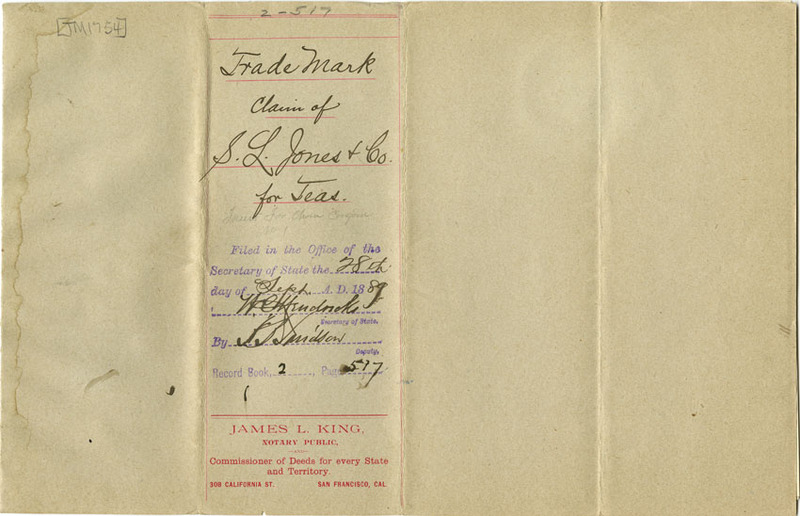 [TM1754]
2-517
Trade Mark
Claim of
S. L. Jones & Co.
for Teas.
Filed in the Office of the
Secretary of State the 28th
day of Sept. A. D. 1889
W C Hendricks
Secretary of State.
By Davidson
Deputy.
Record Book, 2, Page 517
JAMES L. KING,
NOTARY PUBLIC,
Commissioner of Deeds for every State
and Territory.
308 CALIFORNIA ST. SAN FRANCISCO, CAL.